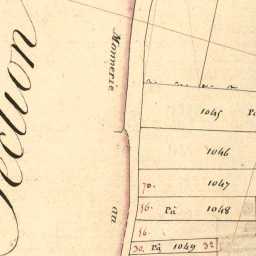 Section
Monnerie
au
1045
1046
70. 1047
56. Pâ 1048
56.
30. Pâ 1049 32